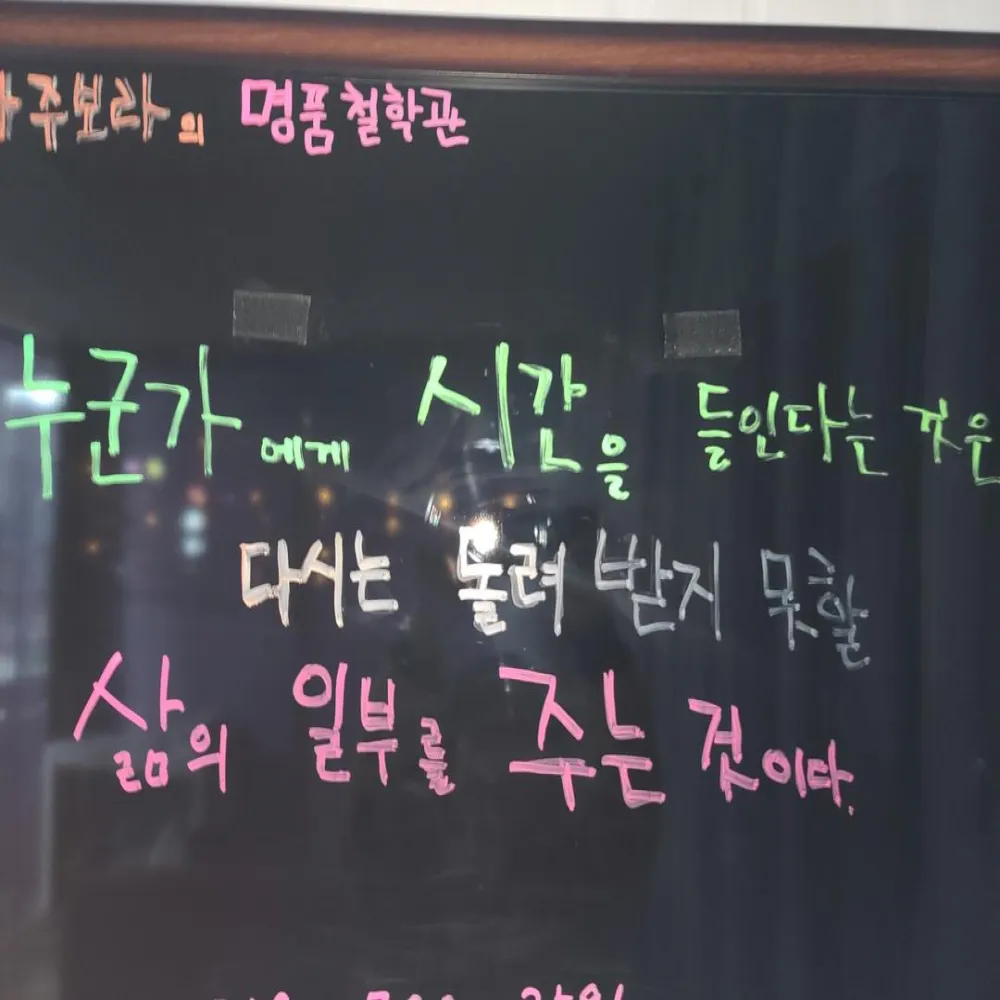 주보라의 명품철학관
누군가에게 시간을 들인다는 것은
다시는 돌려 받지 못할
삶의 일부를 주는 것이다.